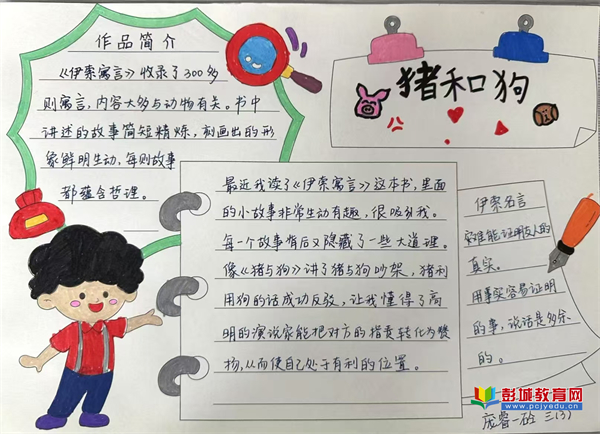 作品简介
《伊索寓言》收录了300多
则寓言,内容大多与动物有关。书中
讲述的故事简短精炼,刻画出的形
象鲜明生动,每则故事
都蕴含哲理。
猪和狗
最近我读了《伊索寓言》这本书,里面
的小故事非常生动有趣,很吸引我。
每一个故事背后又隐藏了一些大道理。
像《猪与狗》讲了猪与狗吵架,猪利
用狗的话成功反驳,让我懂得了高
明的演说家能把对方的指责转化为赞
扬,从而使自己处于有利的位置。
伊索名言
患难能证明友人的
真实。
用事实容易证明
的事,说话是多余
的。
三(3)
彭城教育网
www.pcjyedu.cn